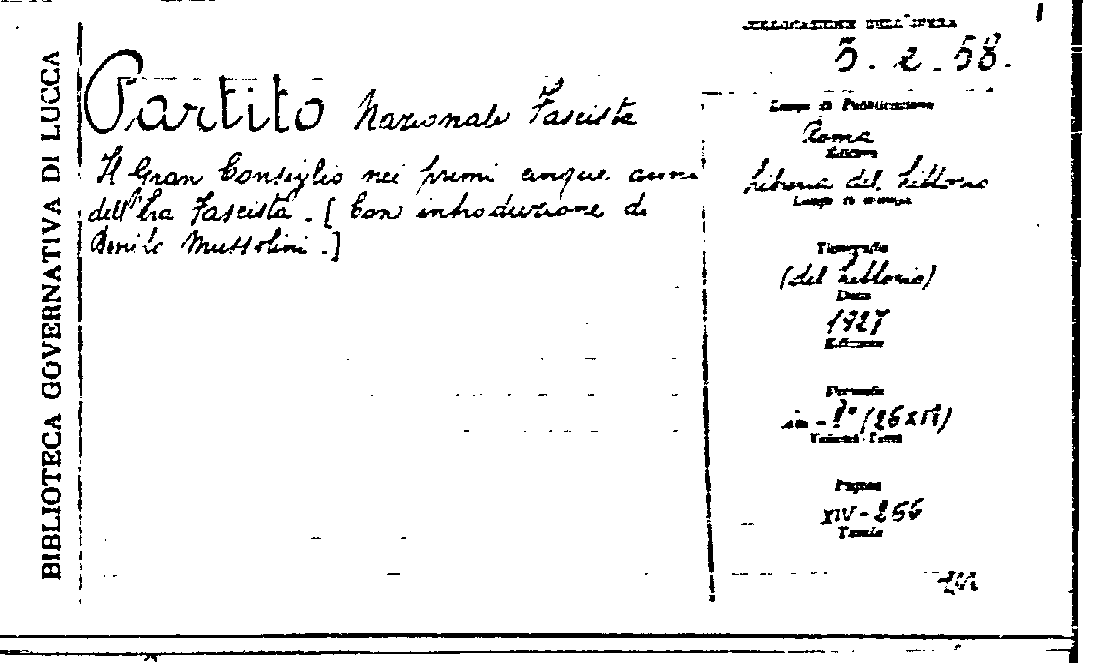 BIBLIOTECA GOVERNATIVA DI LUCCA
Partito Nazionale Fascista
Il Gran Consiglio nei primi cinque anni
dell'Era Fascista. [Con introduzione di
Benito Mussolini.]
COLLOCAZIONE DELL'OPERA
5.2.58.
Luogo di Pubblicazione
Roma
Editore
Libreria del Littorio
Luogo di stampa
Tipografia
(del Littorio)
Data
1927
Edizione
Formato
in-8° (26x17)
Volumi-Tomi
Pagine
XIV-256
Tavole